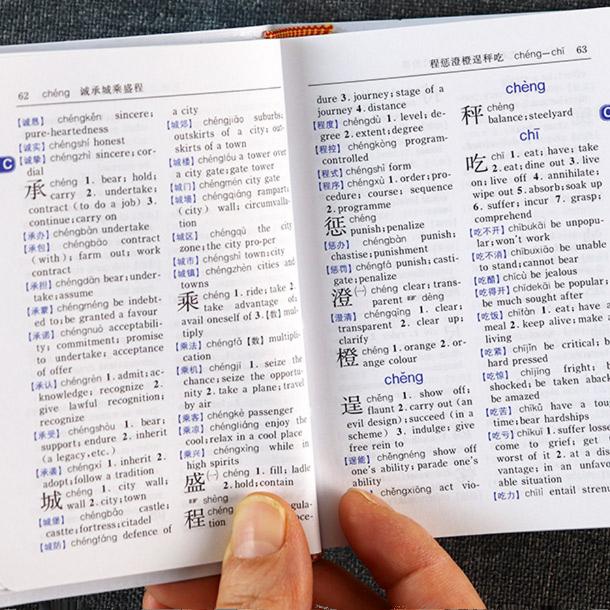 62 chéng 诚承城乘盛程
【诚恳】 chéngkěn sincere;
pure-heartedness
【诚实】 chéngshí honest
【诚挚】 chéngzhì sincere; cor-
dial
承 chéng 1. bear; hold;
carry 2. undertake;
contract (to do a job) 3.
continue; carry on
【承办】 chéngbàn undertake
【承包】 chéngbāo contract
(with); farm out; work
contract
【承担】 chéngdān bear; under-
take; assume
【承蒙】 chéngméng be indebt-
ed to; be granted a favour
【承诺】 chéngnuò acceptabili-
ty; commitment; promise
to undertake; acceptance
of offer
【承认】 chéngrèn 1. admit; ac-
knowledge; recognize 2.
give lawful recognition;
recognize
【承受】 chéngshòu 1. bear;
support; endure 2. inherit
(a legacy, etc.)
【承袭】 chéngxí 1. inherit 2.
adopt; follow a tradition
城 chéng 1. city wall;
wall 2. city; town
【城堡】 chéngbǎo castle;
castte; fortress; citadel
【城防】 chéngfáng defence of
a city
【城郊】 chéngjiāo suburbs;
outskirts of a city; out-
skirts of a town
【城楼】 chénglóu a tower over
a city gate; gate tower
【城门】 chéngmén city gate
【城墙】 chéngqiáng rampart;
(city) wall; circumvalla-
tion
【城区】 chéngqū the city
zone; the city pro-per
【城市】 chéngshì town; city
【城镇】 chéngzhèn cities and
towns
乘 chéng 1. ride; take 2.
take advantage of;
avail oneself of 3.【数】mul-
tiply
【乘法】 chéngfǎ 【数】 multipli-
cation
【乘机】 chéngjī 1. seize the
chance; seize the opportu-
nity 2. take a plane; travel
by air
【乘客】 chéngkè passenger
【乘凉】 chéngliáng enjoy the
cool; relax in a cool place
【乘兴】 chéngxìng while in
high spirits
盛 ㈠ chéng 1. fill; ladle
2. hold; contain
shèng
程 chéng
tion
C
程惩澄橙逞秤吃 chéng—chī 63
dure 3. journey; stage of a
journey 4. distance
【程度】 chéngdù 1. level; de-
gree 2. extent; degree
【程控】 chéngkòng program-
controlled
【程式】 chéngshì form
【程序】 chéngxù 1. order; pro-
cedure; course; sequence
2. programme
惩 chéng
punish; penalize
【惩办】 chéngbàn punish;
chastise; punishment
【惩罚】 chéngfá punish; casti-
gate; penalize
澄 ㈠ chéng clear; trans-
parent dèng
【澄清】 chéngqīng 1. clear;
transparent 2. clear up;
clarify
橙 chéng 1. orange 2. or-
ange colour
chěng
逞 chěng 1. show off;
flaunt 2. carry out (an
evil design); succeed (in a
scheme) 3. indulge; give
free rein to
【逞能】 chěngnéng show off
one's ability; parade one's
ability
chěngxiōng act vio-
chèng
秤 chèng
balance; steelyard
chī
吃 chī 1. eat; have; take
2. eat; dine out 3. live
on; live off 4. annihilate;
wipe out 5. absorb; soak up
6. suffer; incur 7. grasp;
comprehend
【吃不开】 chībùkāi be unpopu-
lar; won't work
【吃不消】 chībùxiāo be unable
to stand; cannot bear
【吃醋】 chīcù be jealous
【吃得开】 chīdekāi be popular;
be much sought after
【吃饭】 chīfàn 1. eat; have a
meal 2. keep alive; make a
living
【吃紧】 chījǐn be critical; be
hard pressed
【吃惊】 chījīng fright; be
shocked; be taken aback;
be amazed
【吃苦】 chīkǔ have a tough
time; bear hardships
【吃亏】 chīkuī 1. suffer losses;
come to grief; get the
worst of it 2. at a disad-
vantage; in an unfavour-
able situation
【吃力】 chīlì entail strenu-
C